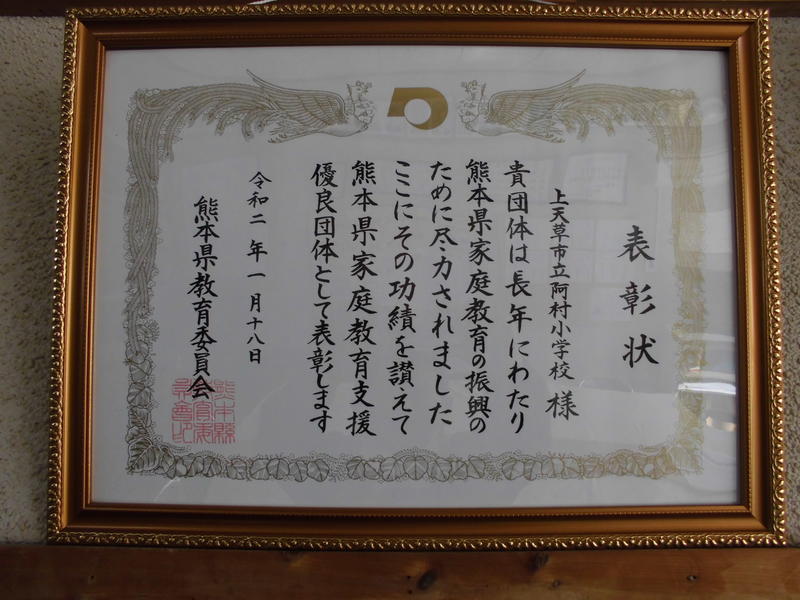 表彰状
上天草市立阿村小学校 様
貴団体は長年にわたり
熊本県家庭教育の振興の
ために尽力されました
ここにその功績を讃えて
熊本県家庭教育支援
優良団体として表彰します
令和二年一月十八日
熊本県教育委員会